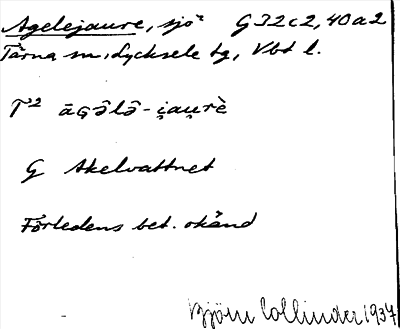 Agelejaure, sjö² G32c2, 40a2
Tärna sn, Lycksele tg, Vbt l.
T² āGə̂lə̂-i̯au̯rè
G Akelvattnet
Förledens bet. okänd
Björn Collinder 1937